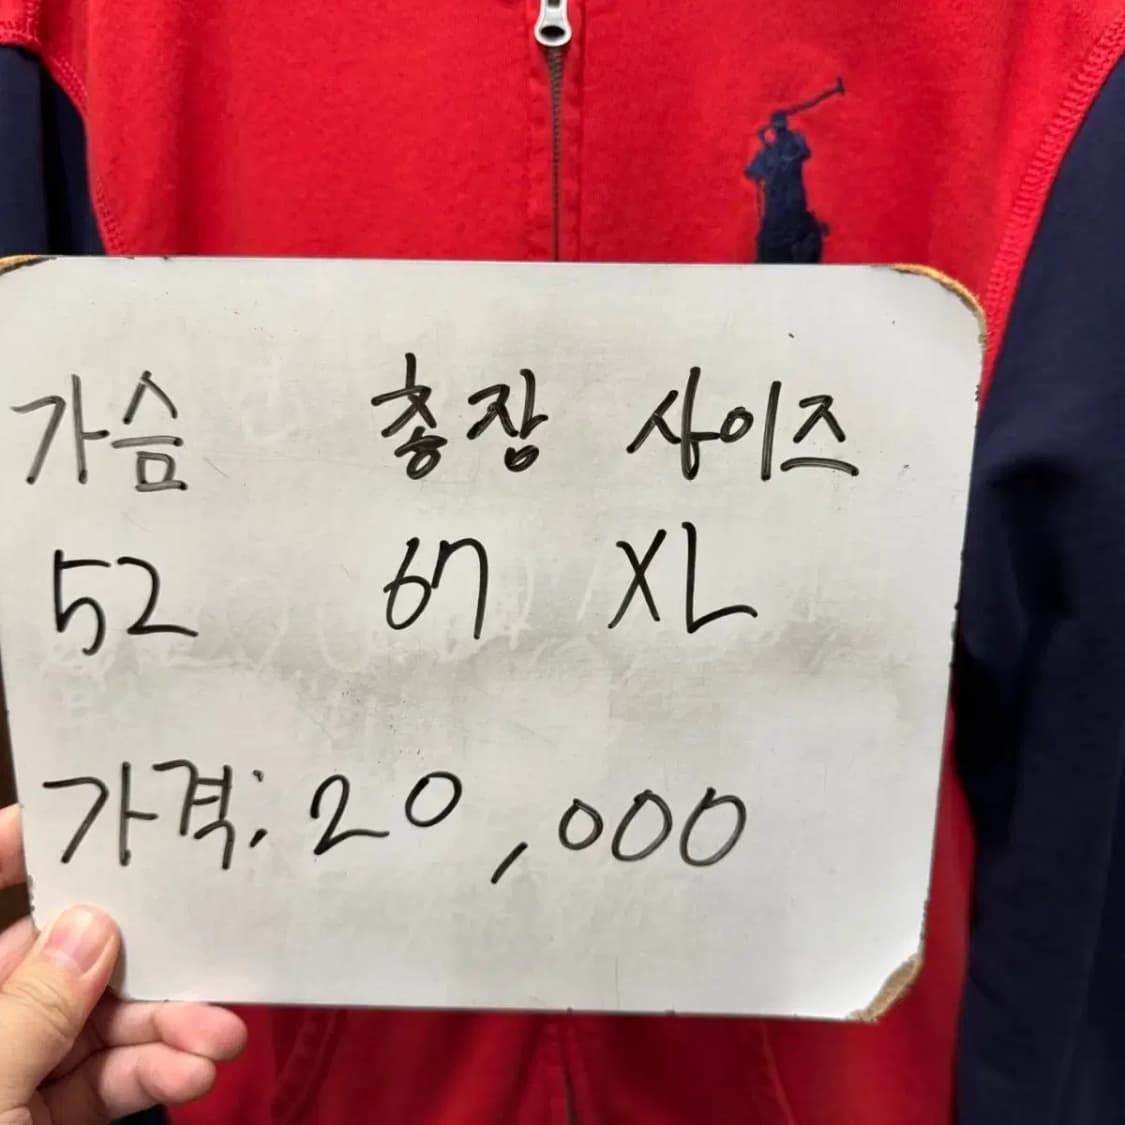 가슴 총장 사이즈
52 67 XL
가격: 20,000